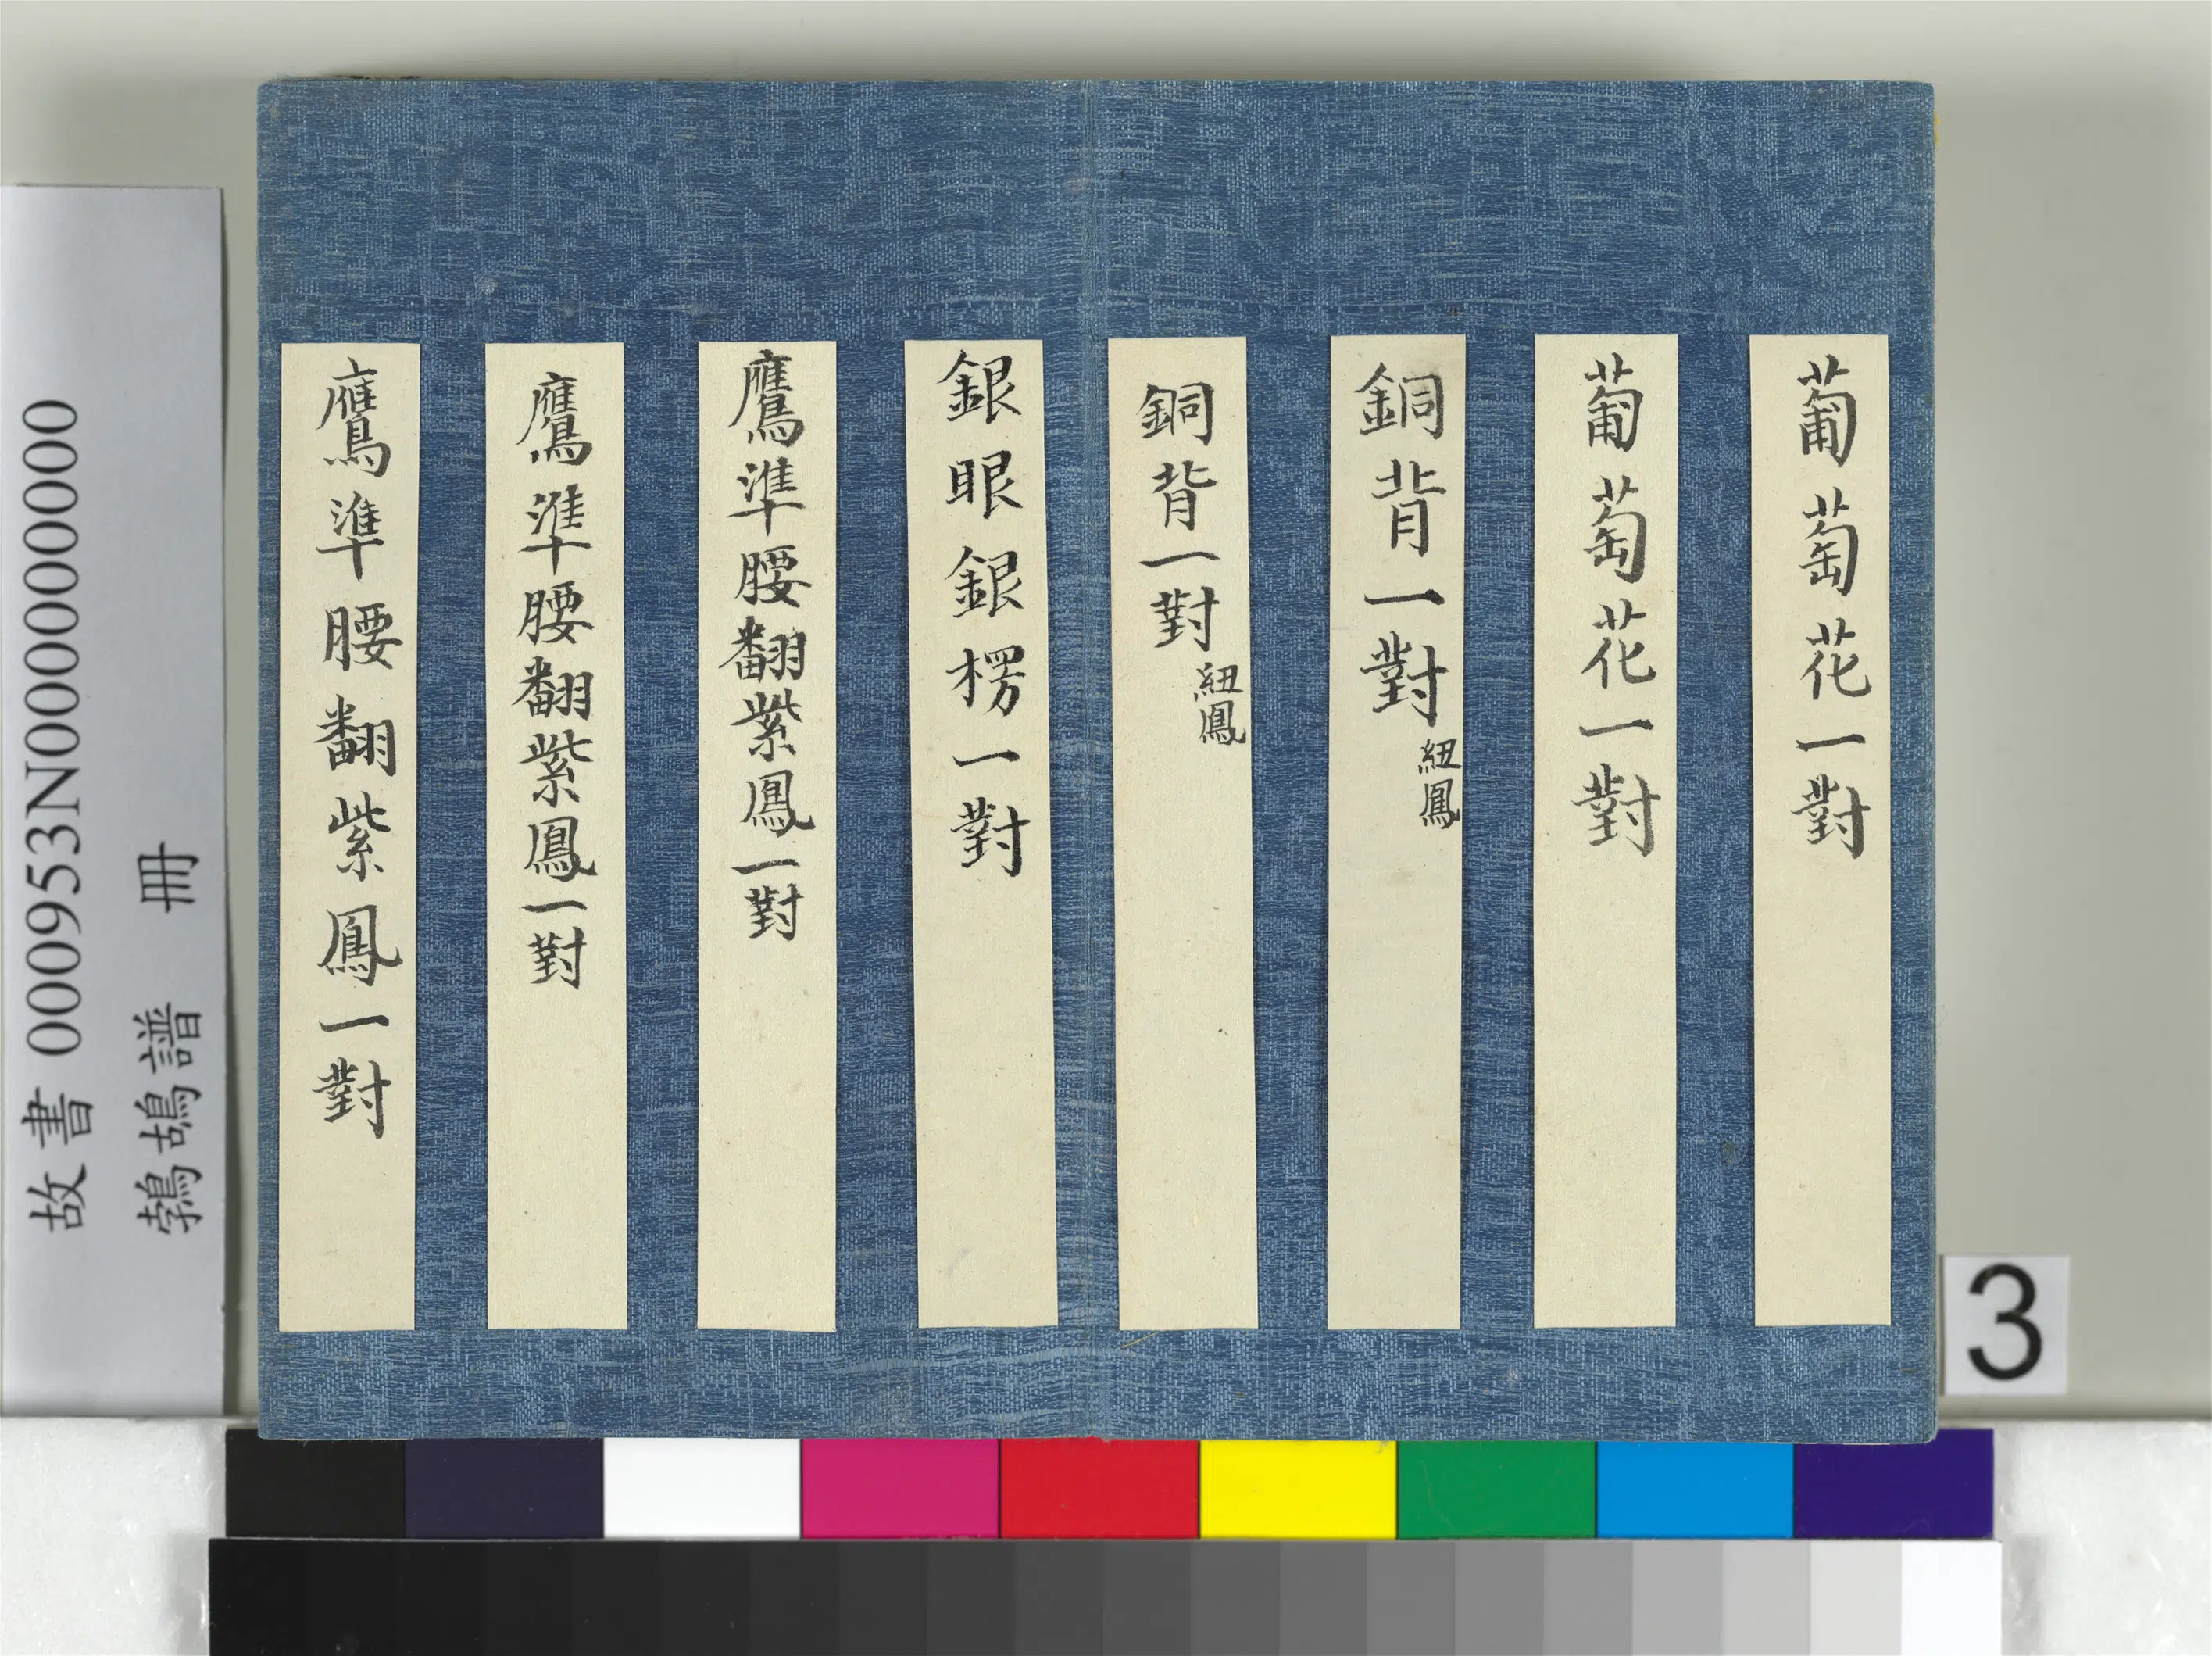 葡萄花一對
葡萄花一對
銅背一對 紐鳳
銅背一對 紐鳳
銀眼銀楞一對
鷹準腰翻紫鳳一對
鷹準腰翻紫鳳一對
鷹準腰翻紫鳳一對
故書 000953N000000000
鵓鴣譜 冊
3